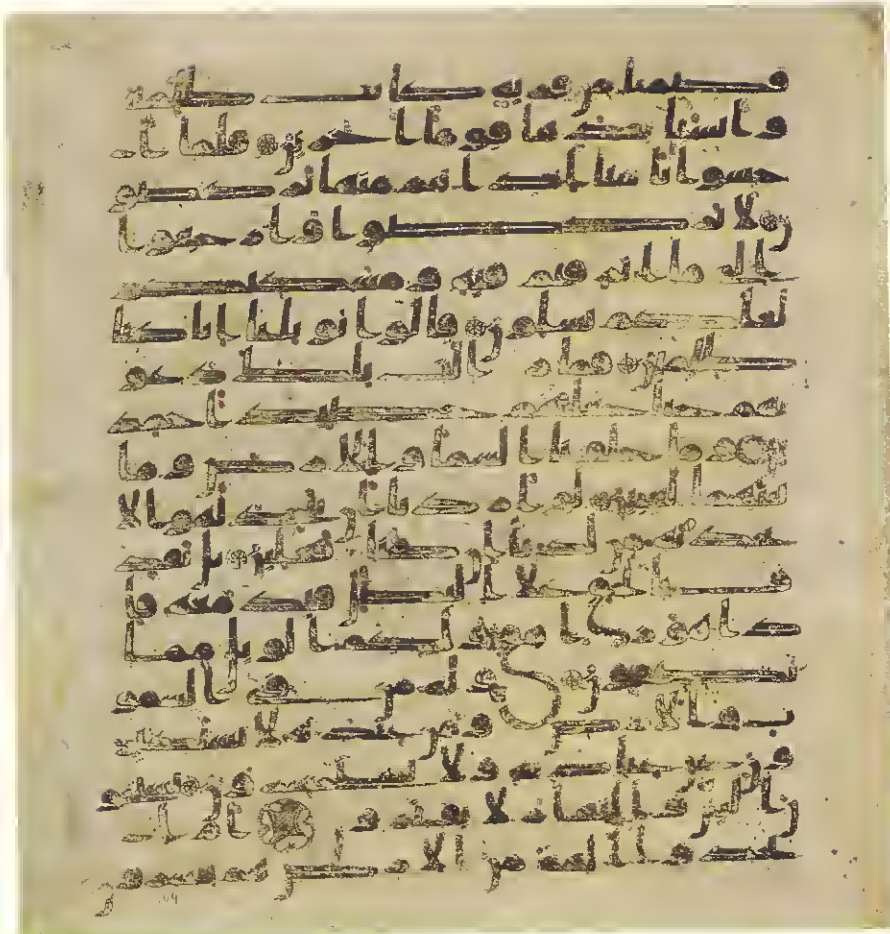 قصمنا من قرية كانت ظلمة
وانشانا بعدها قوما اخرين فلما ا
حسوا باسنا اذا هم منها يركضو
ن لا تركضوا وارجعوا
الى ما اترفتم فيه ومسكنكم
لعلكم تسلون قالوا يويلنا انا كنا
ظلمين فما زالت تلك دعو
يهم حتى جعلنهم حصيدا خمد
ين وما خلقنا السما والارض وما
بينهما لعبين لو اردنا ان نتخذ لهوا لا
تخذنه من لدنا ان كنا فعلين بل نقذ
ف بالحق على البطل فيدمغه فا
ذا هو زاهق ولكم الويل مما
تصفون وله من في السمو
ت والارض ومن عنده لا يستكبر
ون عن عبادته ولا يستحسرون يسبحو
ن اليل والنهار لا يفترون ام ا
تخذوا الهة من الارض هم ينشرون